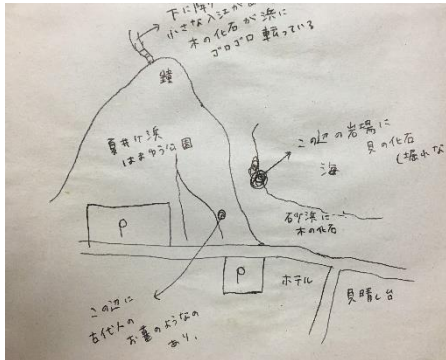 下に降り
小さな入江が
木の化石が浜に
ゴロゴロ転っている
鐘
夏井ヶ浜
はまゆう公園
この辺の岩場に
貝の化石
(掘れな
海
砂浜に
木の化石
P
P
ホテル
見晴し台
この辺に
古代人の
お墓のようなの
あり、